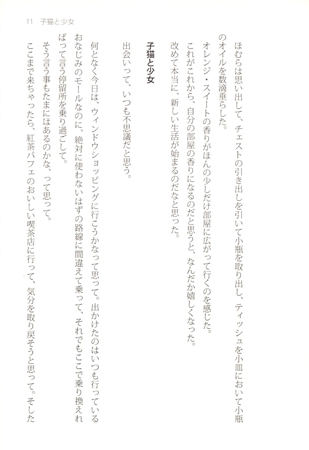 11 子猫と少女
ほむらは思い出して、チェストの引き出しを引いて小瓶を取り出し、ティッシュを小皿において小瓶
のオイルを数滴垂らした。
オレンジ・スイートの香りがほんの少しだけ部屋に広がって行くのを感じた。
これがこれから、自分の部屋の香りになるのだと思うと、なんだか嬉しくなった。
改めて本当に、新しい生活が始まるのだなと思った。
子猫と少女
出会いって、いつも不思議だと思う。
何となく今日は、ウィンドウショッピングに行こうかなって思って。出かけたのはいつも行っている
おなじみのモールなのに、絶対に使わないはずの路線に間違えて乗って、それでもここで乗り換えれ
ばって言う停留所を乗り過ごして。
そう言う事もたまにはあるのかな、って思って。
ここまで来ちゃったら、紅茶パフェのおいしい喫茶店に行って、気分を取り戻そうと思って。そした